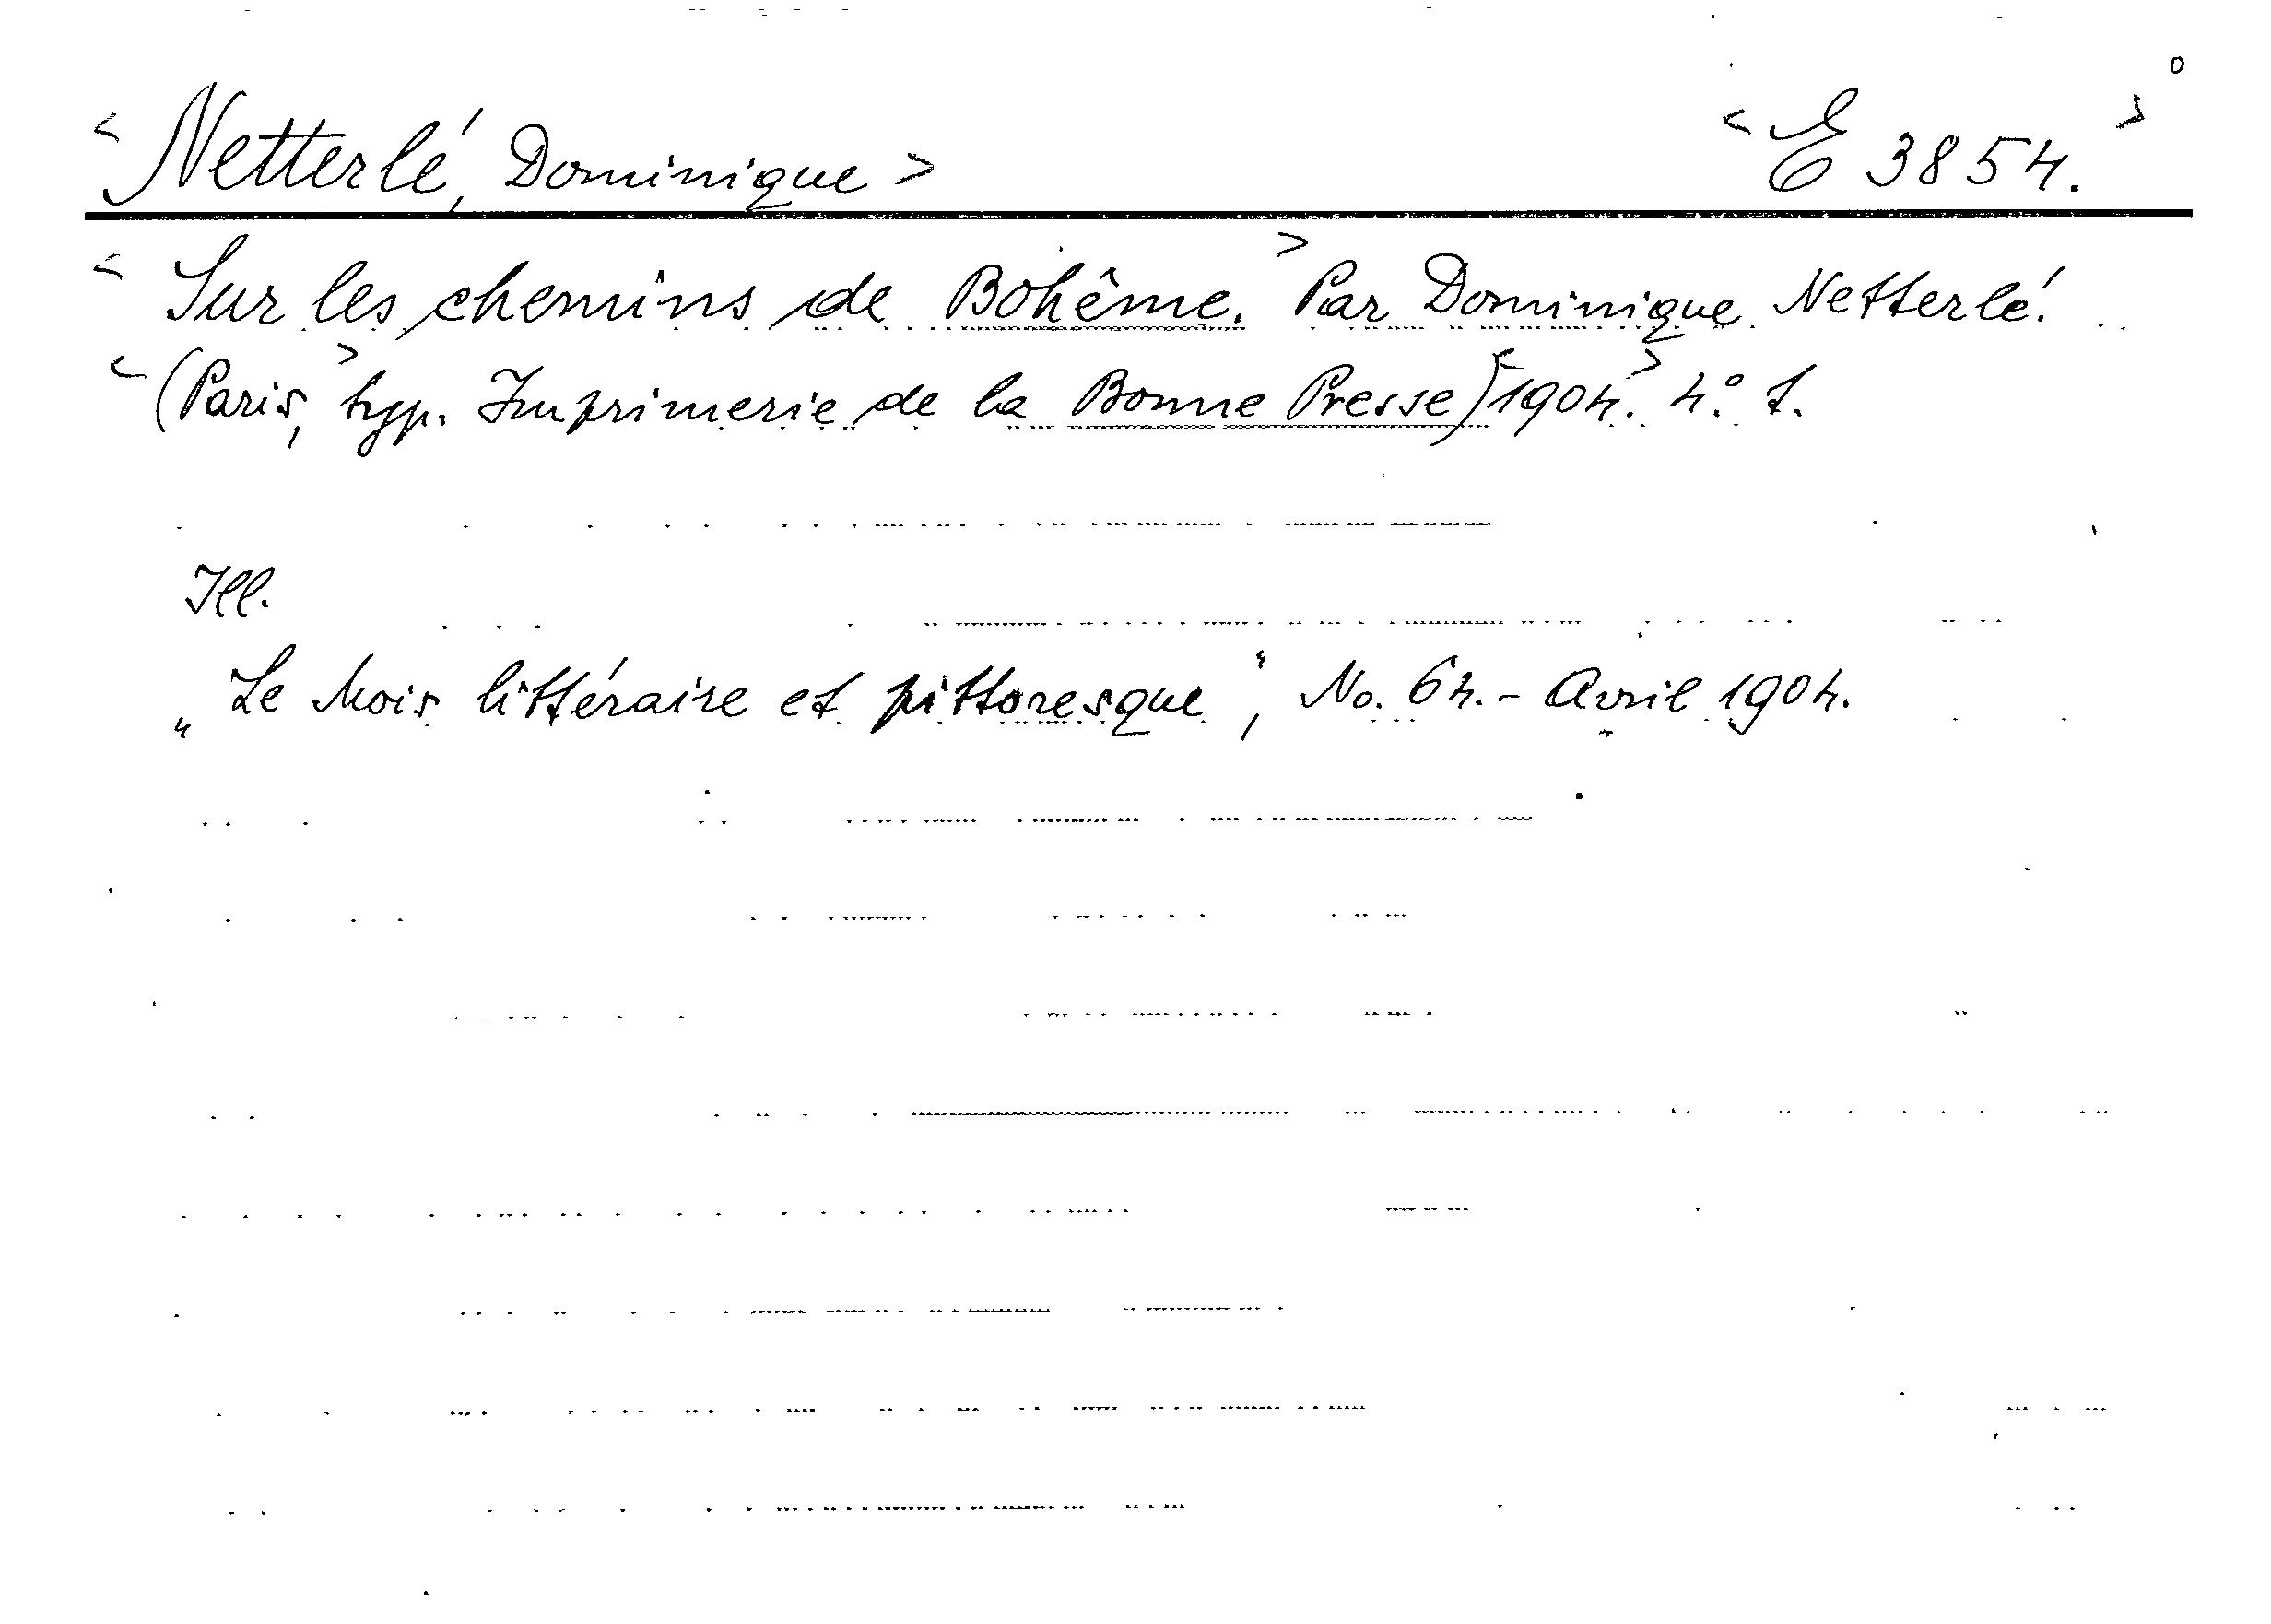 < Netterlé, Dominique > < E 3854. >
< Sur les chemins de Bohême. > Par Dominique Netterlé.
< (Paris, > typ. Imprimerie de la Bonne Presse) < 1904. > 4.° f.
Ill.
„Le Mois littéraire et pittoresque“, No. 64. - Avril 1904.